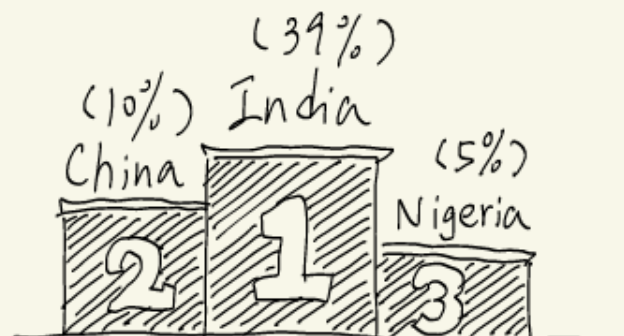 (39%)
India
(10%)
China
(5%)
Nigeria
2
1
3